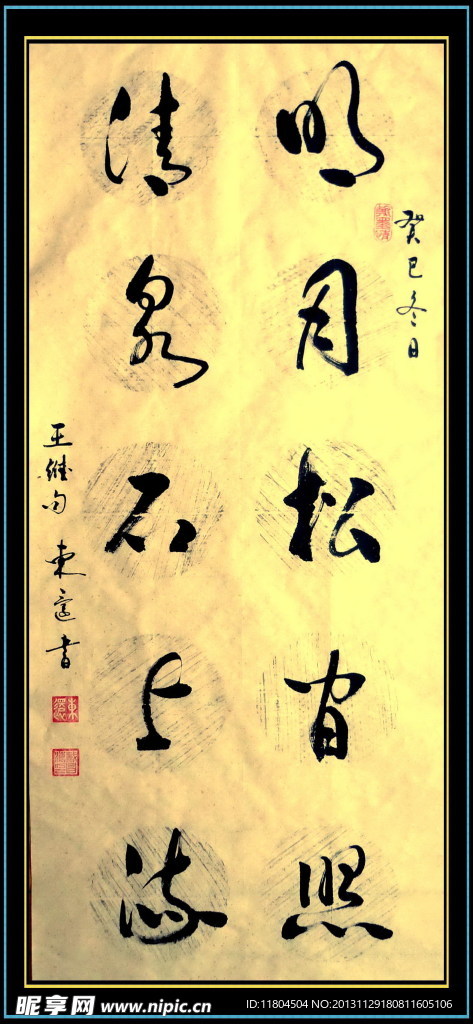 癸巳冬日
明月松间照
清泉石上流
王维句 東逸書
昵享网 www.nipic.cn
ID:11804504 NO:20131129180811605106